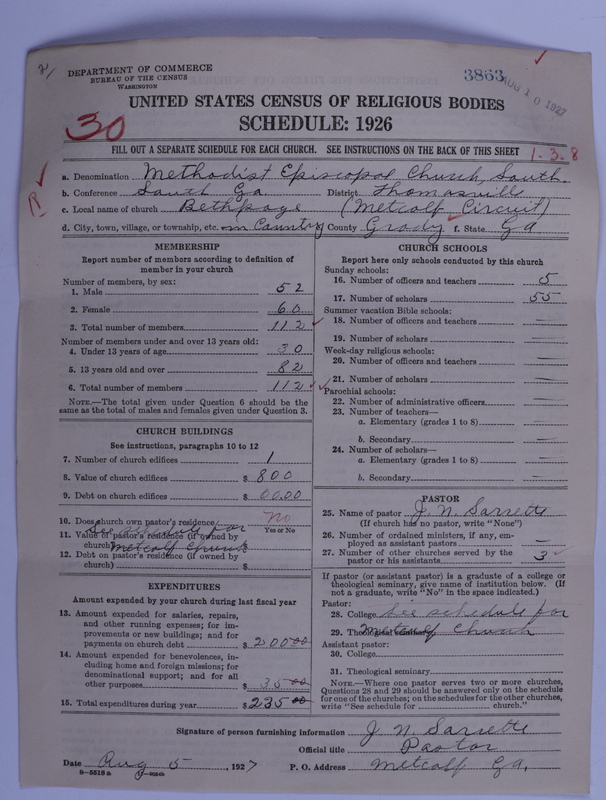 2/
DEPARTMENT OF COMMERCE
BUREAU OF THE CENSUS
WASHINGTON
3863
AUG 10 1927
UNITED STATES CENSUS OF RELIGIOUS BODIES
SCHEDULE: 1926
30
FILL OUT A SEPARATE SCHEDULE FOR EACH CHURCH. SEE INSTRUCTIONS ON THE BACK OF THIS SHEET
1-3-8
a. Denomination Methodist Episcopal Church, South.
b. Conference South Ga. District Thomasville
R
c. Local name of church Bethpage (Metcalf Circuit)
d. City, town, village, or township, etc. in Country County Grady f. State Ga
MEMBERSHIP
Report number of members according to definition of
member in your church
Number of members, by sex:
1. Male 52
2. Female 60
3. Total number of members 112
Number of members under and over 13 years old:
4. Under 13 years of age 30
5. 13 years old and over 82
6. Total number of members 112
NOTE.—The total given under Question 6 should be the
same as the total of males and females given under Question 3.
CHURCH BUILDINGS
See instructions, paragraphs 10 to 12
7. Number of church edifices 1
8. Value of church edifices $ 800
9. Debt on church edifices $ 00.00
10. Does church own pastor's residence? No
Yes or No
See schedule for
11. Value of pastor's residence (if owned by
church) Metcalf Church
12. Debt on pastor's residence (if owned by
church) $
EXPENDITURES
Amount expended by your church during last fiscal year
13. Amount expended for salaries, repairs,
and other running expenses; for im-
provements or new buildings; and for
payments on church debt $ 200.00
14. Amount expended for benevolences, in-
cluding home and foreign missions; for
denominational support; and for all
other purposes 35.00
15. Total expenditures during year $ 235.00
CHURCH SCHOOLS
Report here only schools conducted by this church
Sunday schools:
16. Number of officers and teachers 5
17. Number of scholars 55
Summer vacation Bible schools:
18. Number of officers and teachers —
19. Number of scholars —
Week-day religious schools:
20. Number of officers and teachers —
21. Number of scholars —
Parochial schools:
22. Number of administrative officers —
23. Number of teachers—
a. Elementary (grades 1 to 8) —
b. Secondary —
24. Number of scholars—
a. Elementary (grades 1 to 8) —
b. Secondary —
PASTOR
25. Name of pastor J. N. Sarrette
(If church has no pastor, write "None")
26. Number of ordained ministers, if any, em-
ployed as assistant pastors —
27. Number of other churches served by the
pastor or his assistants 3
If pastor (or assistant pastor) is a graduate of a college or
theological seminary, give name of institution below. (If
not a graduate, write "No" in the space indicated.)
Pastor:
28. College See schedule for
29. Theological seminary Metcalf Church
Assistant pastor:
30. College
31. Theological seminary
NOTE.—Where one pastor serves two or more churches,
Questions 28 and 29 should be answered only on the schedule
for one of the churches; on the schedules for the other churches,
write "See schedule for ______ church."
Signature of person furnishing information J. N. Sarrette
Official title Pastor
Date Aug 5, 1927 P. O. Address Metcalf Ga.
8—5518 a